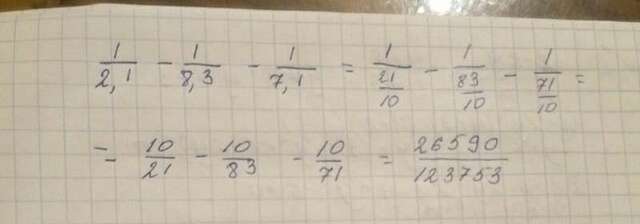 1/2,1 - 1/8,3 - 1/7,1 = 1/(21/10) - 1/(83/10) - 1/(71/10) =
= 10/21 - 10/83 - 10/71 = 26590/123753